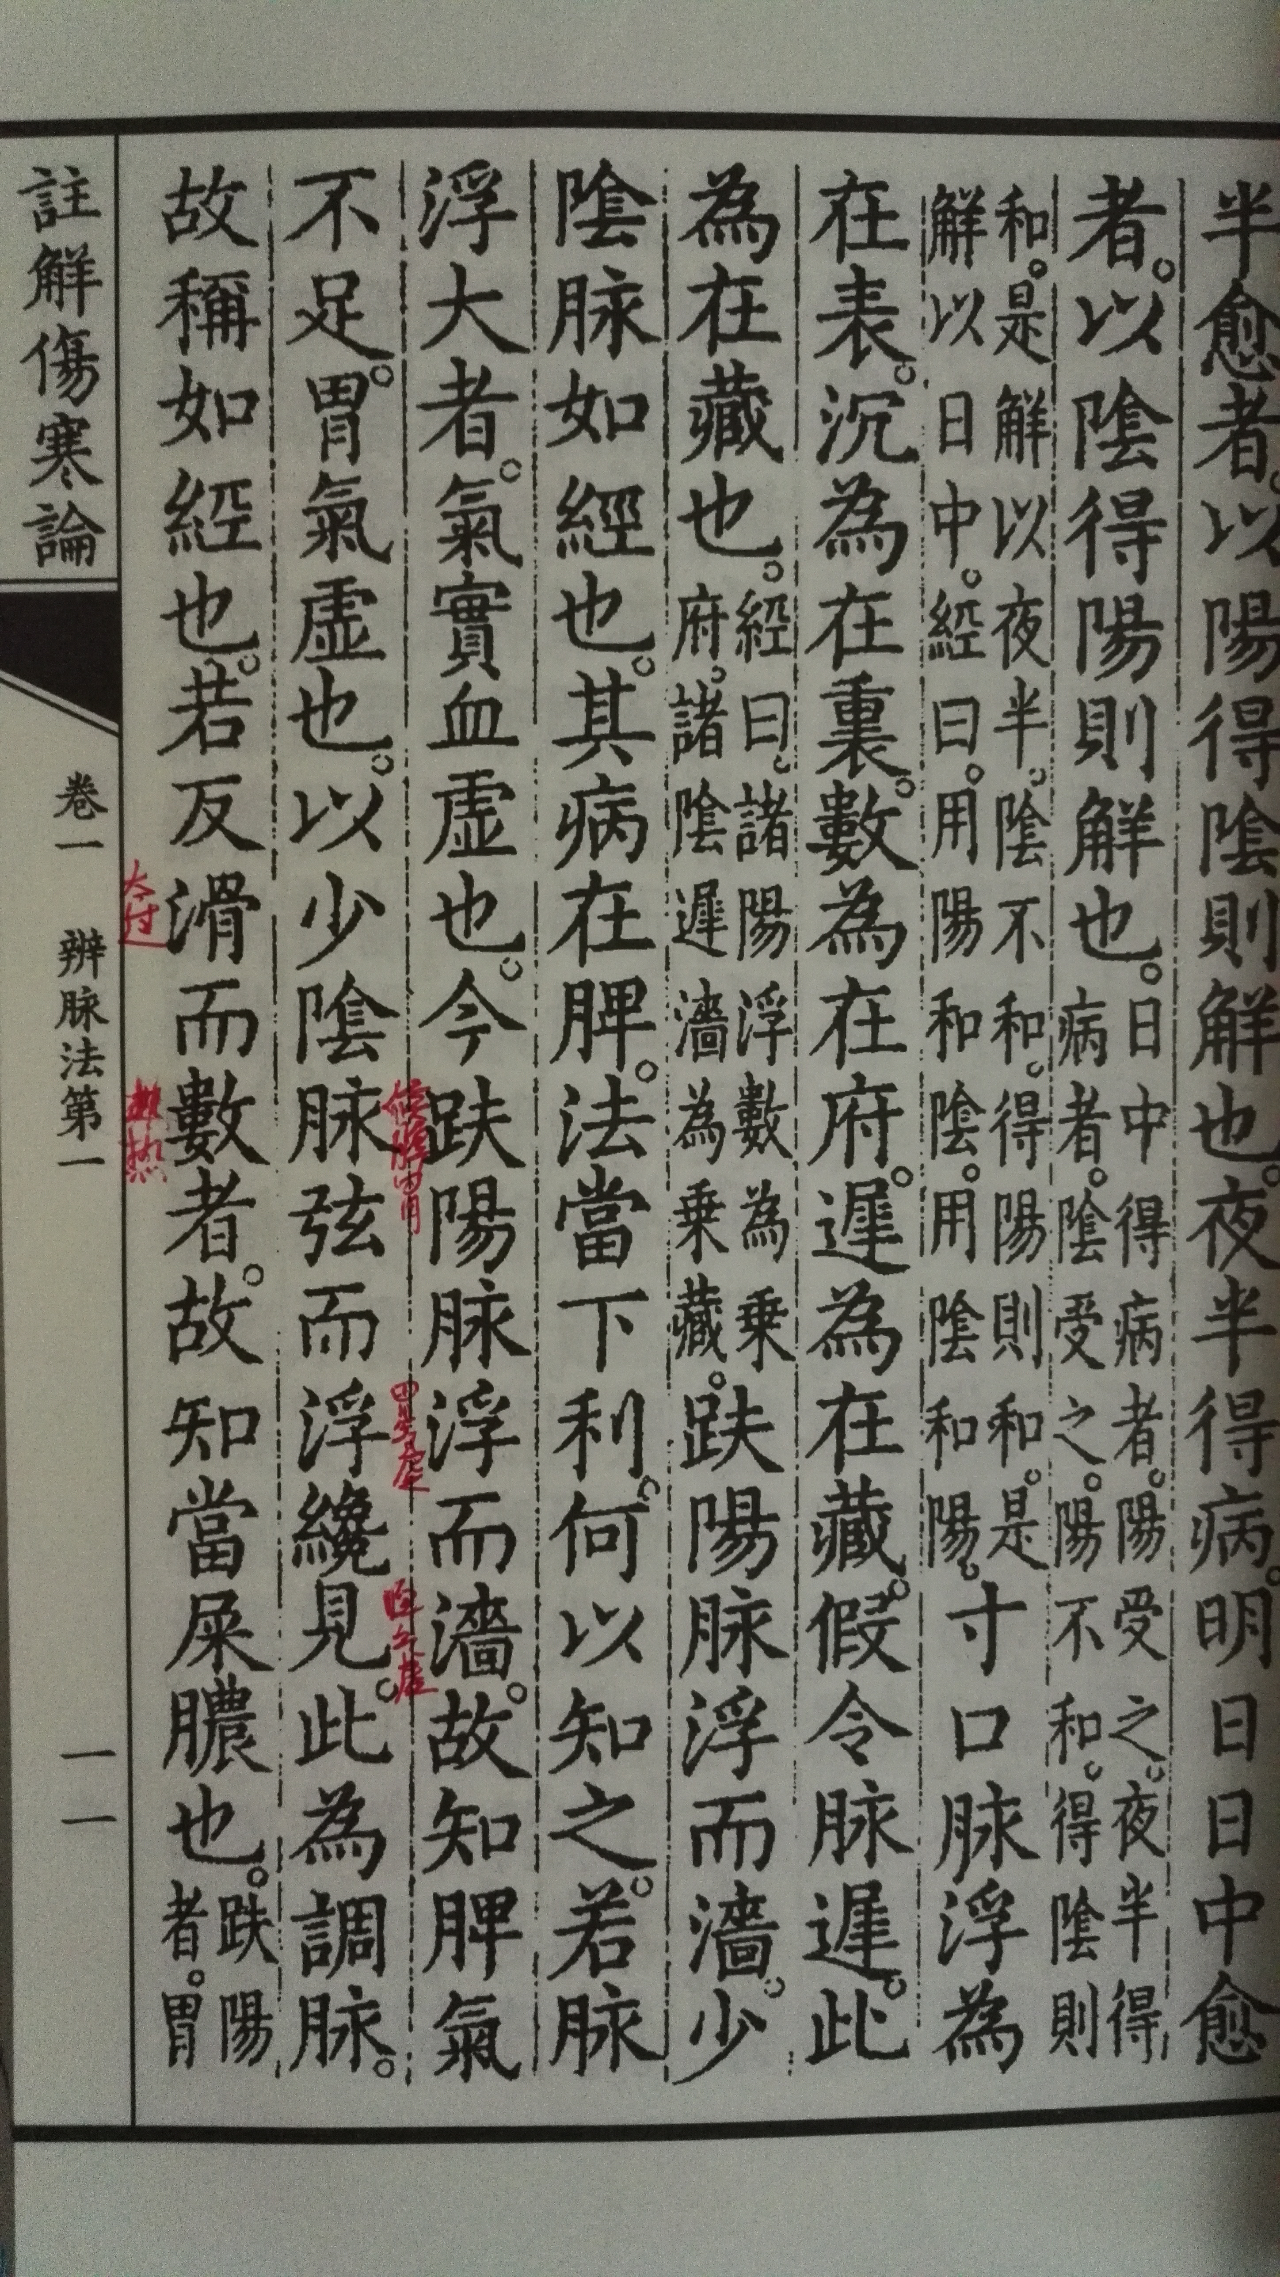 半愈者。以陽得陰則解也。夜半得病。明日日中愈
者。以陰得陽則解也。日中得病者。陽受之。夜半得
病者。陰受之。陽不和。得陰則
和。是解以夜半。陰不和。得陽則和。是
解以日中。經曰。用陽和陰。用陰和陽。寸口脉浮為
在表。沉為在裏。數為在府。遲為在藏。假令脉遲。此
為在藏也。經曰。諸陽浮數為乗
府。諸陰遲濇為乗藏。趺陽脉浮而濇。少
陰脉如經也。其病在脾。法當下利。何以知之。若脉
浮大者。氣實血虛也。今趺陽脉浮而濇。故知脾氣
不足。胃氣虛也。以少陰脉弦而浮纔見。此為調脉。
故稱如經也。若反滑而數者。故知當屎膿也。趺陽
者。胃
候脾胃
胃氣虛
脾氣虛
太过
數热
註解傷寒論
卷一 辨脉法第一
一一